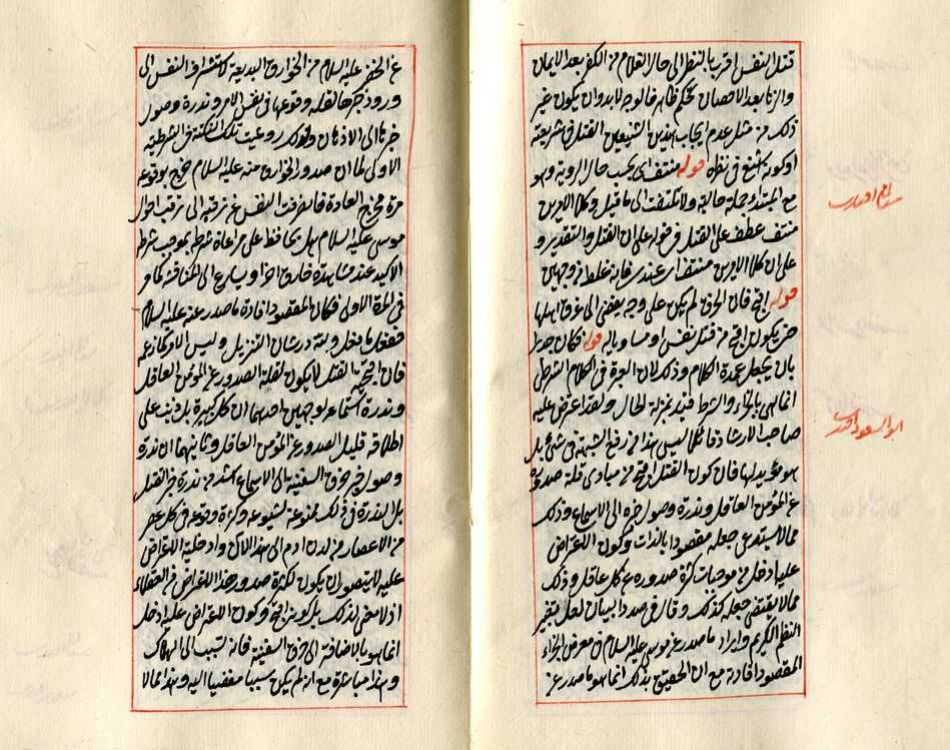 قتل النفس اقرب بالنظر الى حال الغلام من الكفر بعد الايمان
والزنا بعد الاحصان بحكم ظاهر فالوجه لا بد وان يكون غير
ذلك من مثل عدم ايجاب هذين الشنيعين القتل في شريعته
او كونه اشنع في نظره قوله منتف اى بحسب حال الروية وهو
مع المبتدأ جملة حالية ولا يلتفت الى ما قيل وكلا الامرين
منتف عطف على القتل فرضوا على ان القتل والتقدير و
على ان كلا الامرين منتف اى عندى فانه غلط من وجهين
قوله اقبح فان الخرق لم يكن على وجه يفضى الى غرق اهلها
حتى يكون اقبح من قتل نفس او مساويا له قوله فكان جديرا
بان يجعل عمدة الكلام وذلك لان العبرة فى الكلام الشرطى
انما هى بالجزاء والشرط قيد بمنزلة الحال ولقد اعترض عليه
صاحب الارشاد قائلا ليس هذا من رفع الشبهة فى شئ بل
هو مؤيد لها فان كون القتل اقبح من مبادى قلة صدوره
عن المؤمن العاقل وندرة وصول خبره الى الاسماع وذلك
مما لا يستدعى جعله مقصودا بالذات وكون الاعتراض
عليه ادخل من موجبات كثرة صدوره عن كل عاقل وذلك
مما لا يقتضى جعله كذلك وقال فى صدد ابيان لعل تغيير
النظم الكريم وايراد ما صدر عن موسى عليه السلام فى معرض الجزاء
المقصود افادته مع ان الحقيق بذلك انما هو ما صدر عن
ابو السعود افندى
عن الخضر عليه السلام من الخوارق البديعة لاستشراف النفس الى
ورود خبرها لقلة وقوعها فى نفس الامر وندرة وصول
خبرها الى الاذهان ولذلك روعيت تلك النكتة فى الشرطية
الاولى لما ان صدور الخوارق منه عليه السلام خرج بوقوعه
مرة مخرج العادة فانصرفت النفس عن ترقبه الى ترقب احوال
موسى عليه السلام هل يحافظ على مراعاة شرطه بموجب شرطه
الاكيد عند مشاهدة خارق اخر او يسارع الى المناقشة كما مر
فى المرة الاولى فكان المقصود افادة ما صدر عنه عليه السلام
ففعل ما فعل ولله در شان التنزيل وليس الامر كما زعم
فان اقبحية القتل لا يكون لقلة الصدور عن المؤمن العاقل
وندرة استماعه لوجهين احدهما ان كل كبيرة بل ذنب على
اطلاقه قليل الصدور عن المؤمن العاقل وثانيهما ان ندرة
وصول خبر خرق السفينة الى الاسماع اشد من ندرة خبر القتل
بل الندرة فى ذلك ممنوعة لشيوعه وكثرة وقوعه فى كل عصر
من الاعصار من لدن ادم الى هذا الان وادخلية الاعتراض
عليه لا يتصور ان يكون لكثرة صدور هذا الاعتراض من العقلاء
اذ لا معنى لذلك بل كونه اقبح وكون الاعتراض عليه ادخل
انما هو بالاضافة الى خرق السفينة فانه تسبب الى الهلاك
وهذا مباشرة مع انه لم يكن سببا مفضيا اليه وهذا مما لا